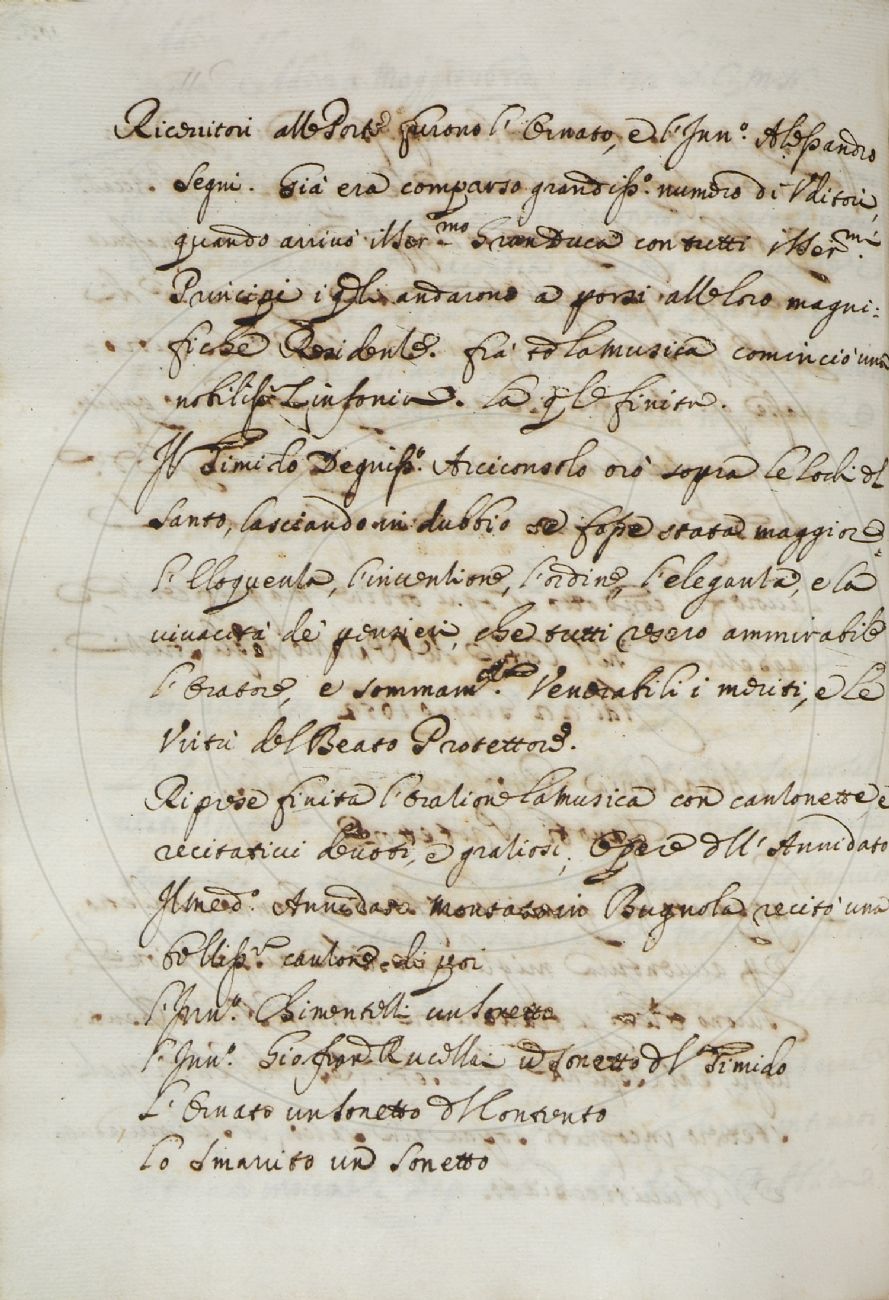 Riceuitori alle Porte furono l'Ornato, e l'Inn.º Alessandro
Segni. Già era comparso grandiss.º numero di Vditori,
quando arriuò il Ser.mo GranDuca con tutti i Ser.mi
Principi i q.li andarono a porsi alle loro magni:
fiche Residente. frà tto la musica cominciò una
nobiliss.ª Sinfonia. La q.le finita.
Il Timido Degniss.º Arciconsolo orò sopra le lodi d'l
Santo, lasciando in dubbio se fosse stata maggiore
l'Eloquenza, l'inuentione, l'ordine, l'eleganza, e la
viuacità de' pensieri, che tutti resero ammirabile
l'Oratore, e sommam.te Venerabili i meriti, e le
Virtù del Beato Protettore.
Riprese finita l'Oratione la musica con canzonette, e
recitatiui deuoti, e gratiosi, Opere dll' Annidato
Il med.º Annidato montato in Bugnola recitò una
belliss.ª canzone. di poi
l'Inn.º Chimentelli un Sonetto
l'Inn.º Gio: fran.º Rucellai un Sonetto d'l Timido
L'Ornato un Sonetto d'l Contento
Lo Smarrito un Sonetto